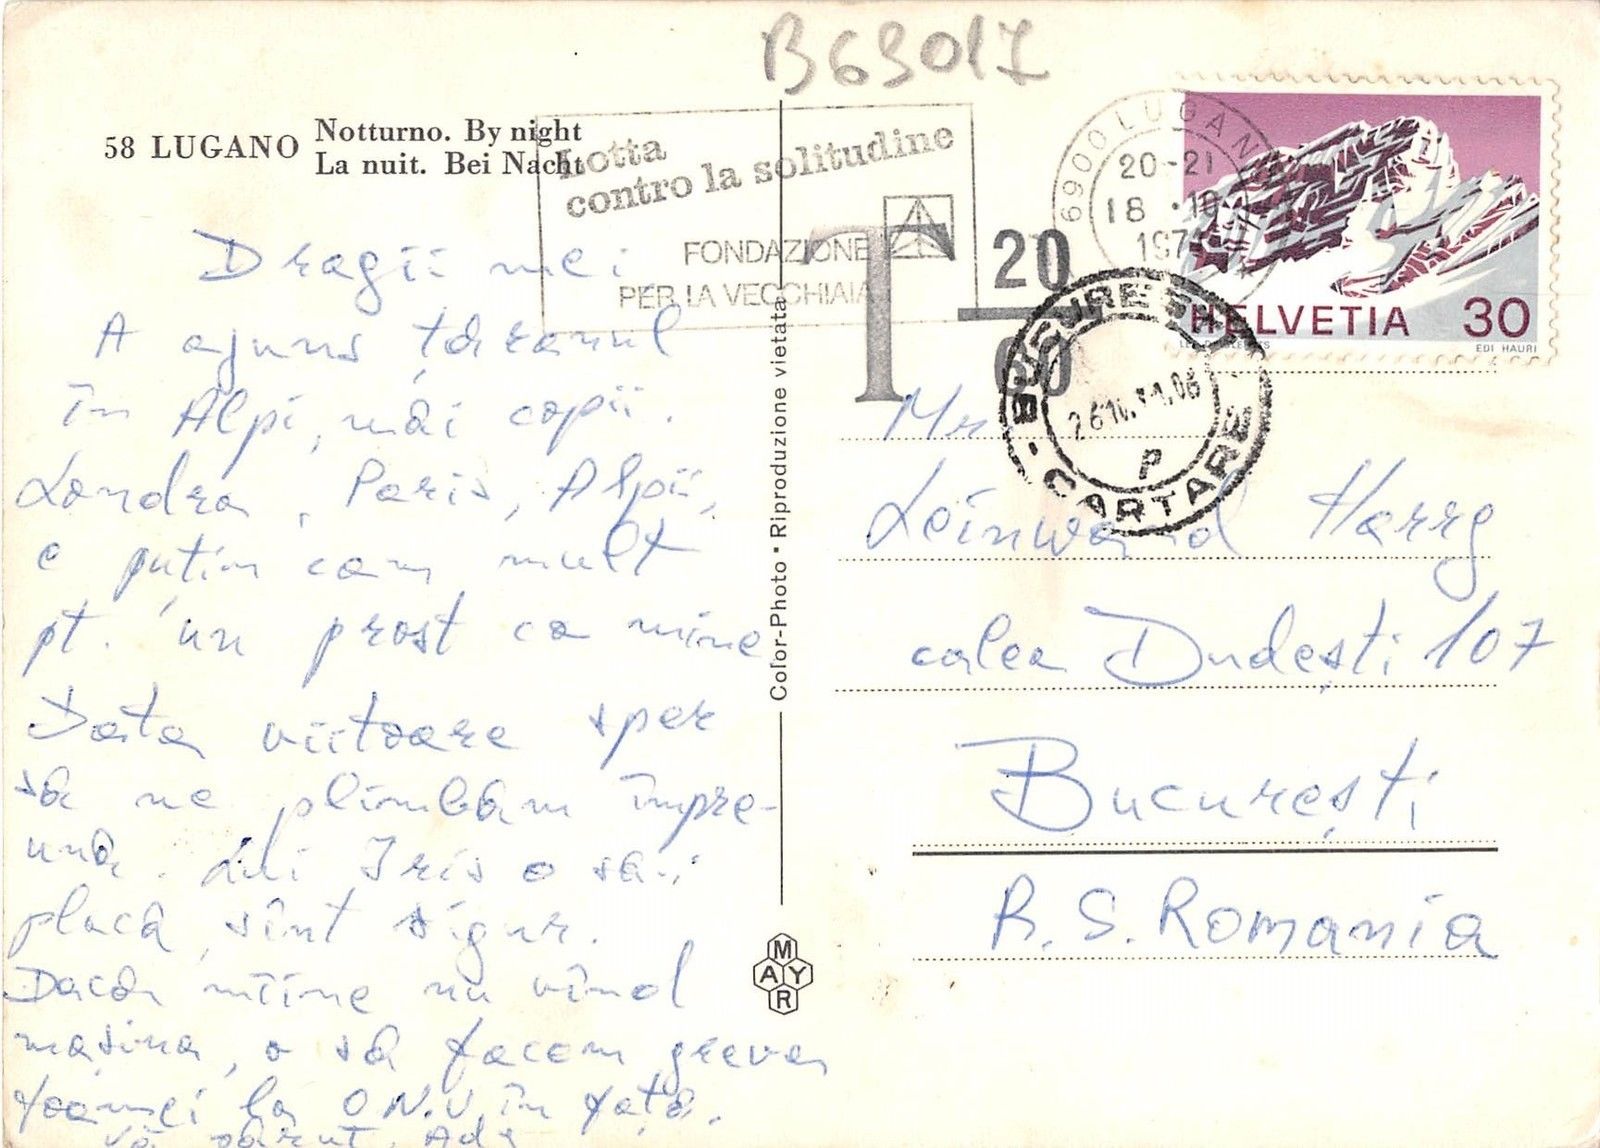 B69017
58 LUGANO Notturno. By night
La nuit. Bei Nacht
Lotta
contro la solitudine
FONDAZIONE
PER LA VECCHIAIA
T 20
60
6900 LUGANO
20-21
18.10
HELVETIA 30
EDI HAURI
BUCUREȘTI
CARTARE
P
Dragii mei
A ajuns țăranul
în Alpi, măi copii.
Londra, Paris, Alpii,
e puțin cam mult
pt. un prost ca mine
Data viitoare sper
să ne plimbăm împre-
ună. Lui Iris o să-i
placă, sînt sigur.
Dacă mîine nu vînd
mașina, o să facem greva
foamei la O.N.U. în față.
Vă părut. Ady
Color-Photo • Riproduzione vietata
MAYR
Mr
Leinwand Harry
calea Dudești 107
București
R. S. Romania